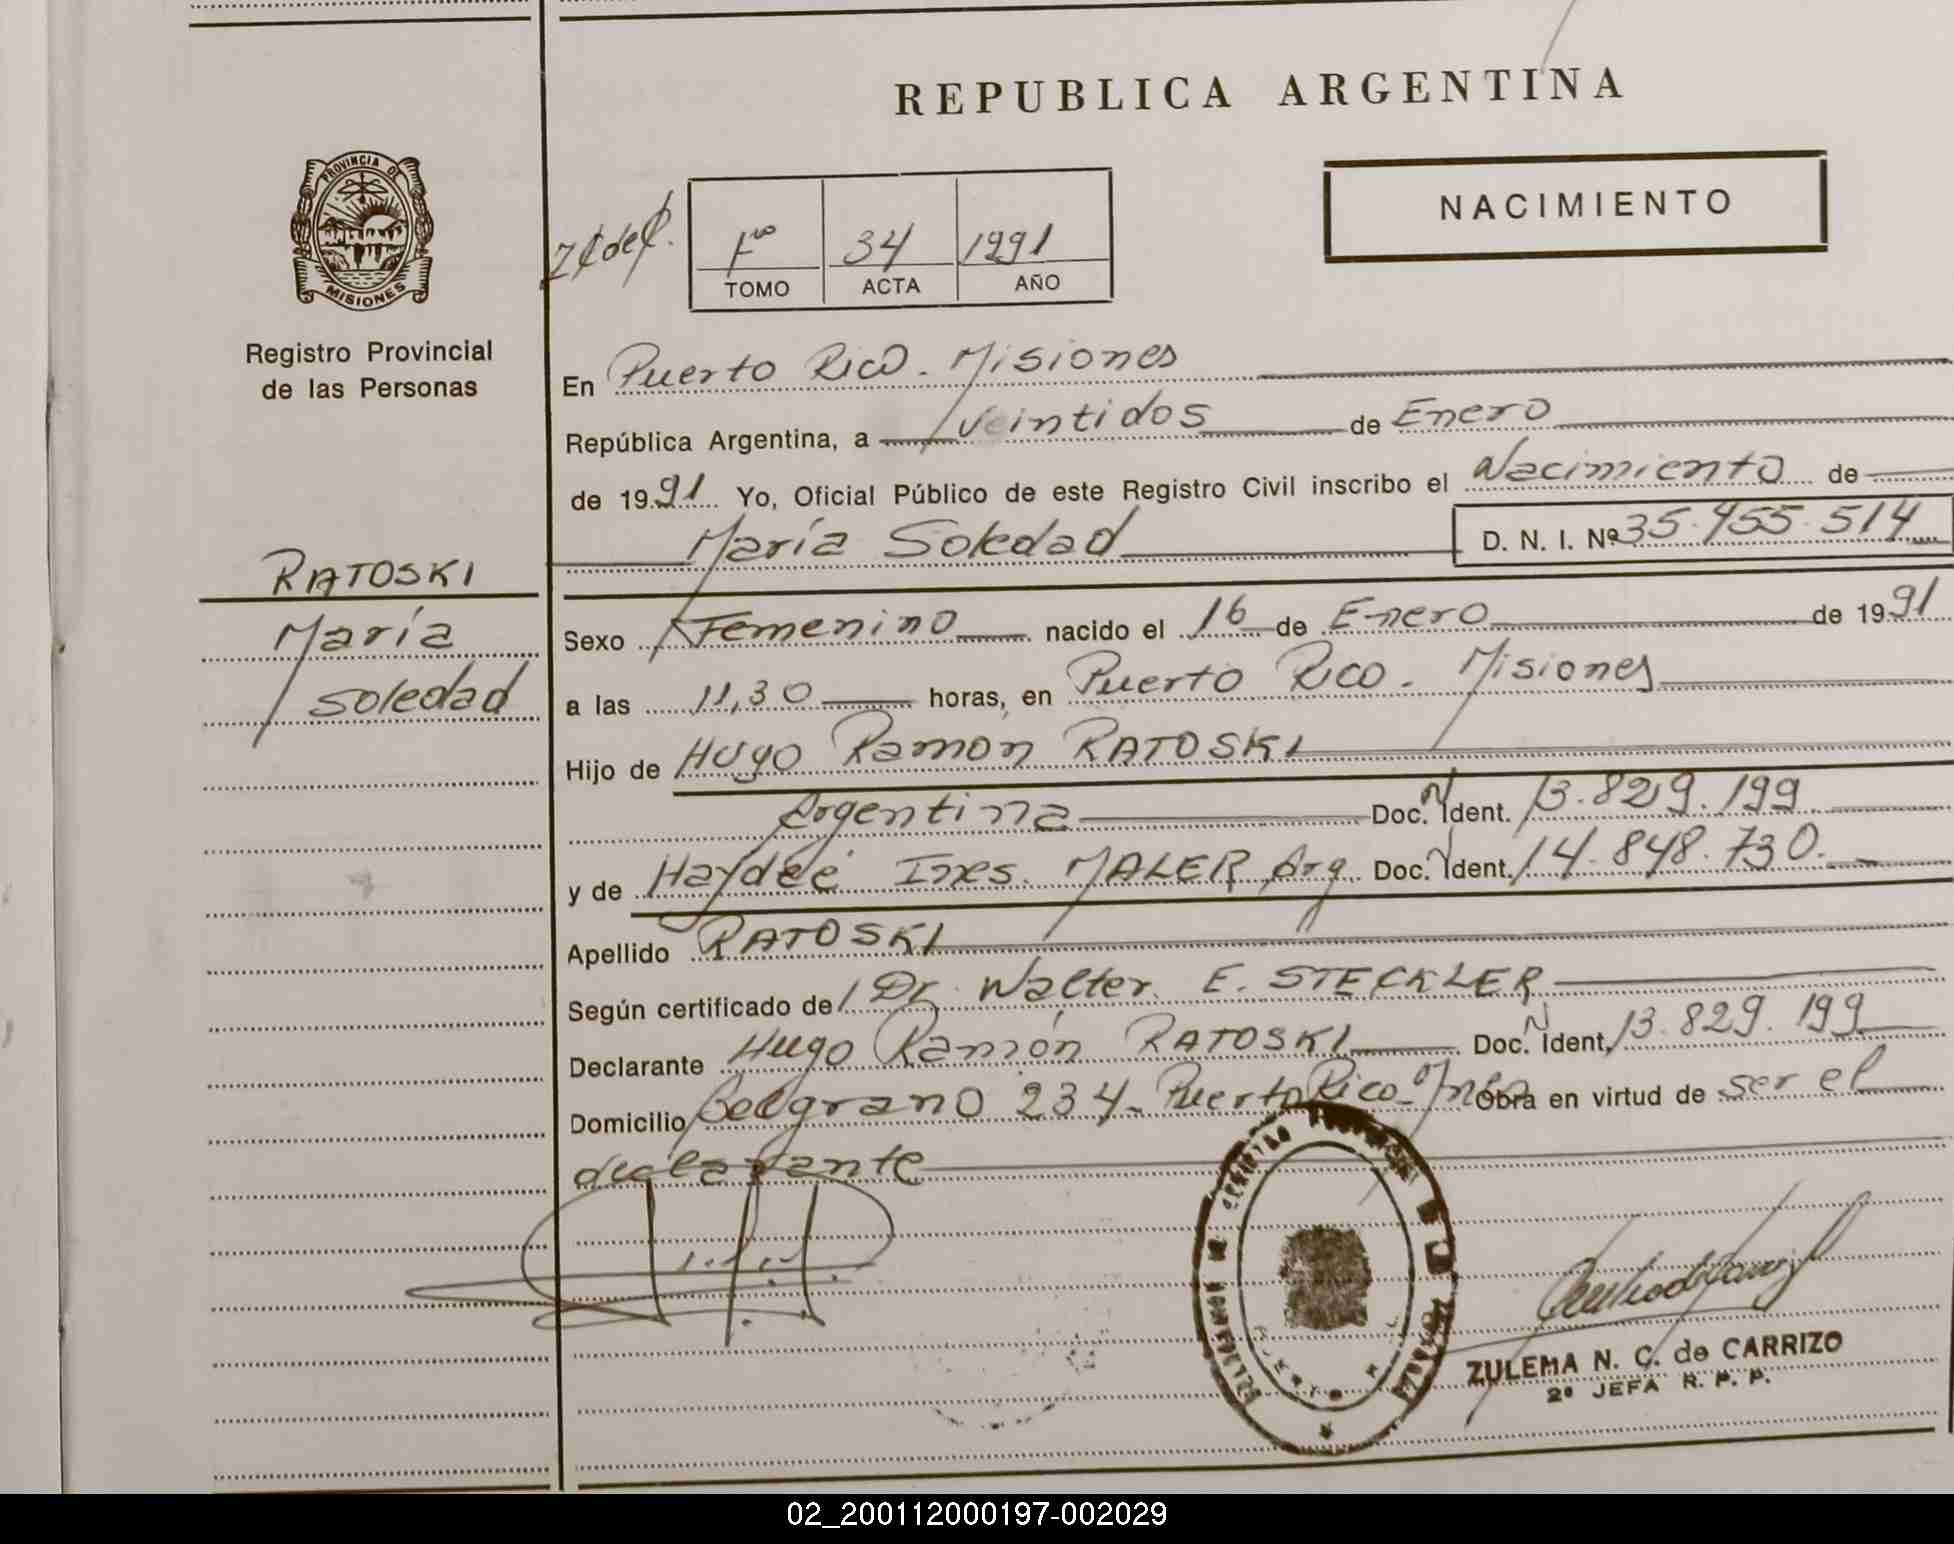 REPUBLICA ARGENTINA
PROVINCIA DE MISIONES
Registro Provincial
de las Personas
NACIMIENTO
Fº 34 1991
TOMO ACTA AÑO
En Puerto Rico. Misiones
República Argentina, a veintidos de Enero
de 1991 Yo, Oficial Público de este Registro Civil inscribo el Nacimiento de
María Soledad D. N. I. Nº 35.455.514
RATOSKI
María
Soledad
Sexo Femenino nacido el 16 de Enero de 1991
a las 11,30 horas, en Puerto Rico. Misiones
Hijo de Hugo Ramon RATOSKI
Argentina Doc. Ident. 13.829.199
y de Haydeé Ines. MALER Arg. Doc. Ident. 14.848.730.
Apellido RATOSKI
Según certificado de Dr. Walter E. STECKLER
Declarante Hugo Ramón RATOSKI Doc. Ident. 13.829.199
Domicilio Belgrano 234- Puerto Rico Obra en virtud de ser el
declarante
ZULEMA N. C. de CARRIZO
2º JEFA R. P. P.
02_200112000197-002029